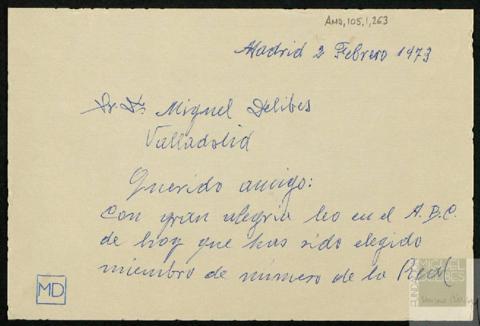 AMD, 105, 1, 263
Madrid 2 Febrero 1973
Sr. D. Miguel Delibes
Valladolid
Querido amigo:
Con gran alegria leo en el A.B.C.
de hoy que has sido elegido
miembro de número de la Real
MD
FUNDACIÓN
MIGUEL
DELIBES